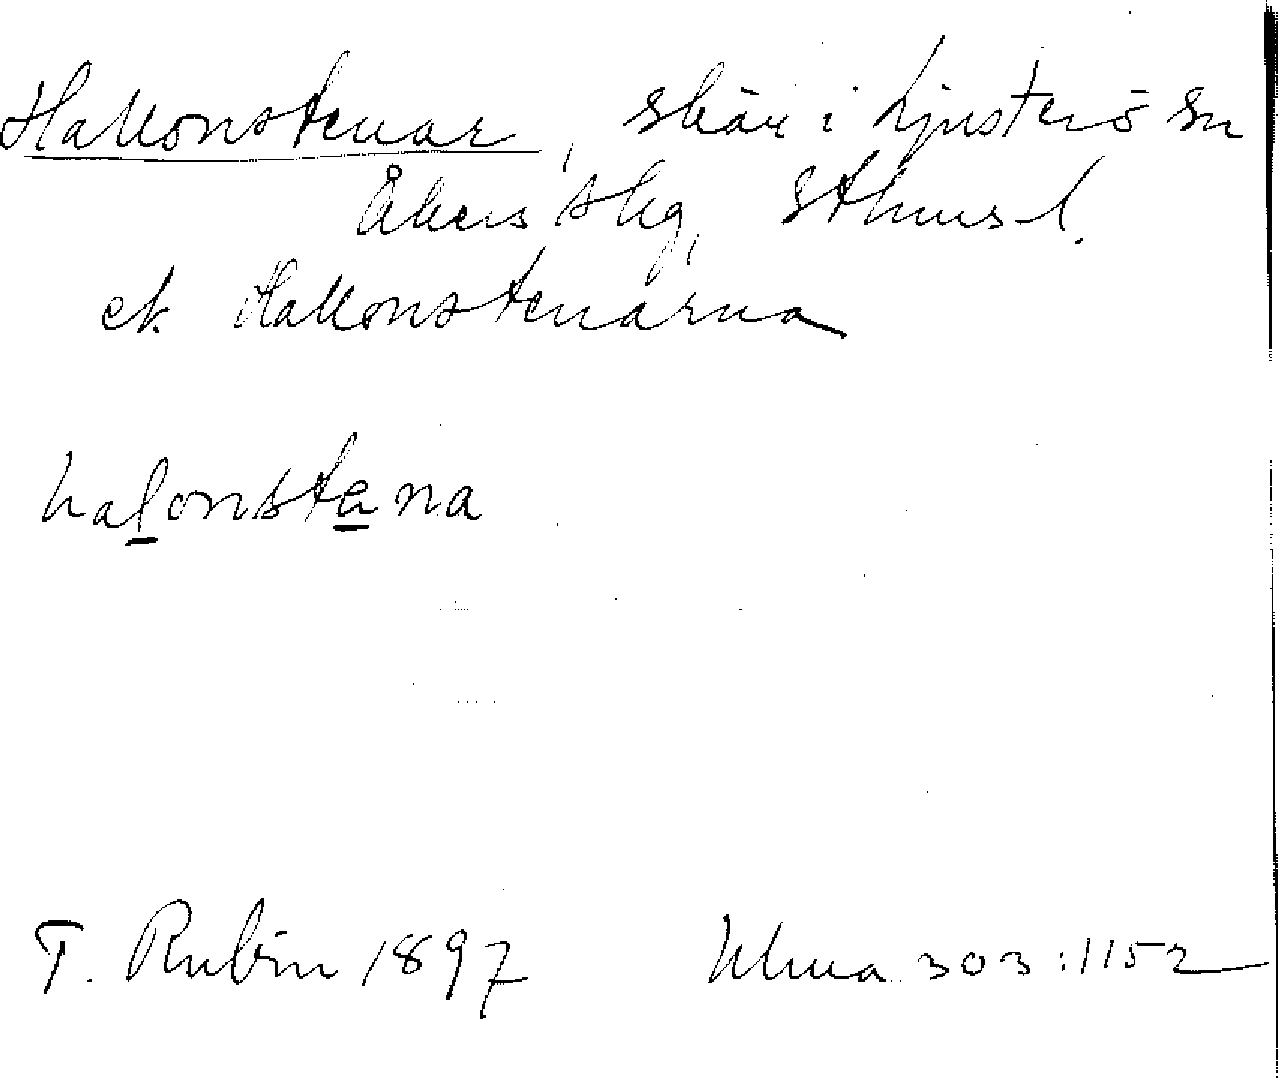 Hallonstenar, skär i Ljusterö sn
Åkers skg, Sthms l.
ek. Hallonstenarna
halonstena
T. Rubin 1897 Ulma 303:1152